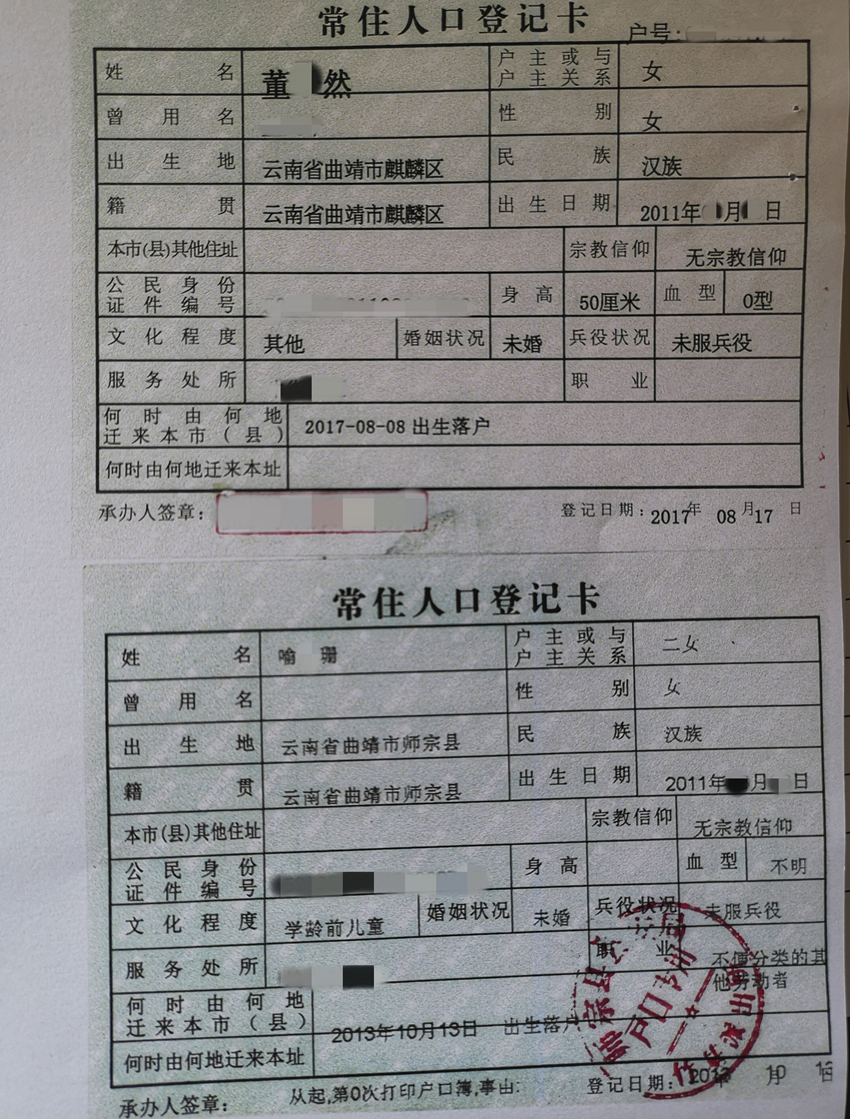 常住人口登记卡
户号:
姓名 董 然 户主或与户主关系 女
曾用名 性别 女
出生地 云南省曲靖市麒麟区 民族 汉族
籍贯 云南省曲靖市麒麟区 出生日期 2011年 月 日
本市(县)其他住址 宗教信仰 无宗教信仰
公民身份证件编号 身高 50厘米 血型 O型
文化程度 其他 婚姻状况 未婚 兵役状况 未服兵役
服务处所 职业
何时由何地迁来本市(县) 2017-08-08 出生落户
何时由何地迁来本址
承办人签章: 登记日期: 2017年 08月17 日
常住人口登记卡
姓名 喻 珊 户主或与户主关系 二女
曾用名 性别 女
出生地 云南省曲靖市师宗县 民族 汉族
籍贯 云南省曲靖市师宗县 出生日期 2011年 月 日
本市(县)其他住址 宗教信仰 无宗教信仰
公民身份证件编号 身高 血型 不明
文化程度 学龄前儿童 婚姻状况 未婚 兵役状况 未服兵役
服务处所 职业 不便分类的其他劳动者
何时由何地迁来本市(县) 2013年10月13日 出生落户
何时由何地迁来本址
从起,第0次打印户口簿,事由:
承办人签章: 登记日期: 2013年 10月
师宗县公安局
户口专用